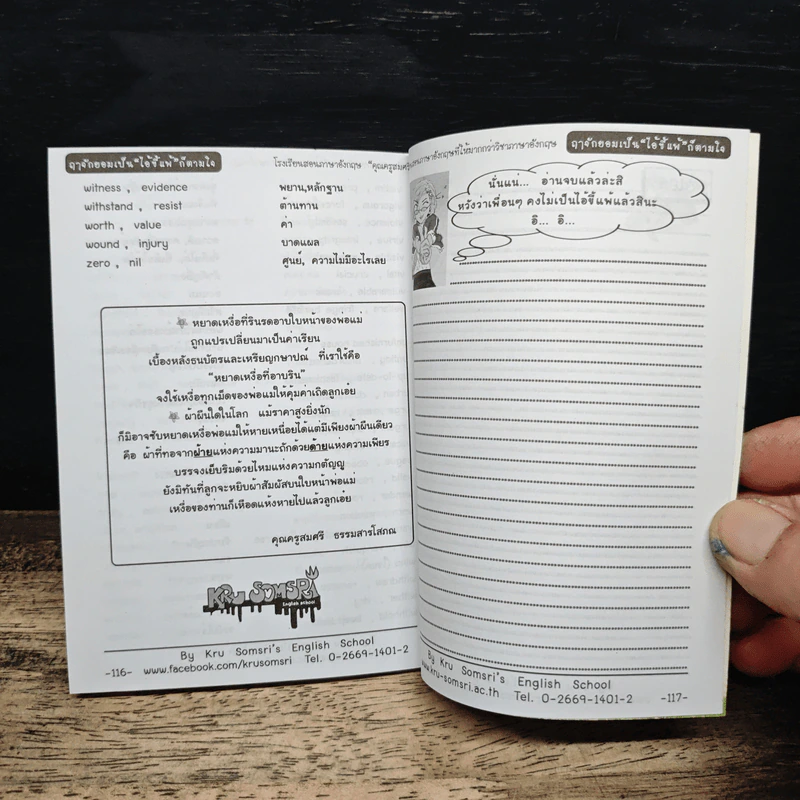 ฤาจักยอมเป็น"ไอ้ขี้แพ้"ก็ตามใจ
โรงเรียนสอนภาษาอังกฤษ "คุณครูสมศรี
witness , evidence พยาน,หลักฐาน
withstand , resist ต้านทาน
worth , value ค่า
wound , injury บาดแผล
zero , nil ศูนย์, ความไม่มีอะไรเลย
หยาดเหงื่อที่รินรดอาบใบหน้าของพ่อแม่
ถูกแปรเปลี่ยนมาเป็นค่าเรียน
เบื้องหลังธนบัตรและเหรียญกษาปณ์ ที่เราใช้คือ
"หยาดเหงื่อที่อาบริน"
จงใช้เหงื่อทุกเม็ดของพ่อแม่ให้คุ้มค่าเถิดลูกเอ๋ย
ผ้าผืนใดในโลก แม้ราคาสูงยิ่งนัก
ก็มิอาจซับหยาดเหงื่อพ่อแม่ให้หายเหนื่อยได้แต่มีเพียงผ้าผืนเดียว
คือ ผ้าที่ทอจากฝ้ายแห่งความมานะถักด้วยด้ายแห่งความเพียร
บรรจงเย็บริมด้วยไหมแห่งความกตัญญู
ยังมิทันที่ลูกจะหยิบผ้าสัมผัสบนใบหน้าพ่อแม่
เหงื่อของท่านก็เหือดแห้งหายไปแล้วลูกเอ๋ย
คุณครูสมศรี ธรรมสารโสภณ
KRU SOMSRI
English school
By Kru Somsri's English School
-116- www.facebook.com/krusomsri Tel. 0-2669-1401-2
สอนภาษาอังกฤษที่ให้มากกว่าวิชาภาษาอังกฤษ
ฤาจักยอมเป็น"ไอ้ขี้แพ้"ก็ตามใจ
นั่นแน... อ่านจบแล้วล่ะสิ
หวังว่าเพื่อนๆ คงไม่เป็นไอ้ขี้แพ้แล้วสินะ
อิ... อิ...
By Kru Somsri's English School
www.kru-somsri.ac.th Tel. 0-2669-1401-2 -117-